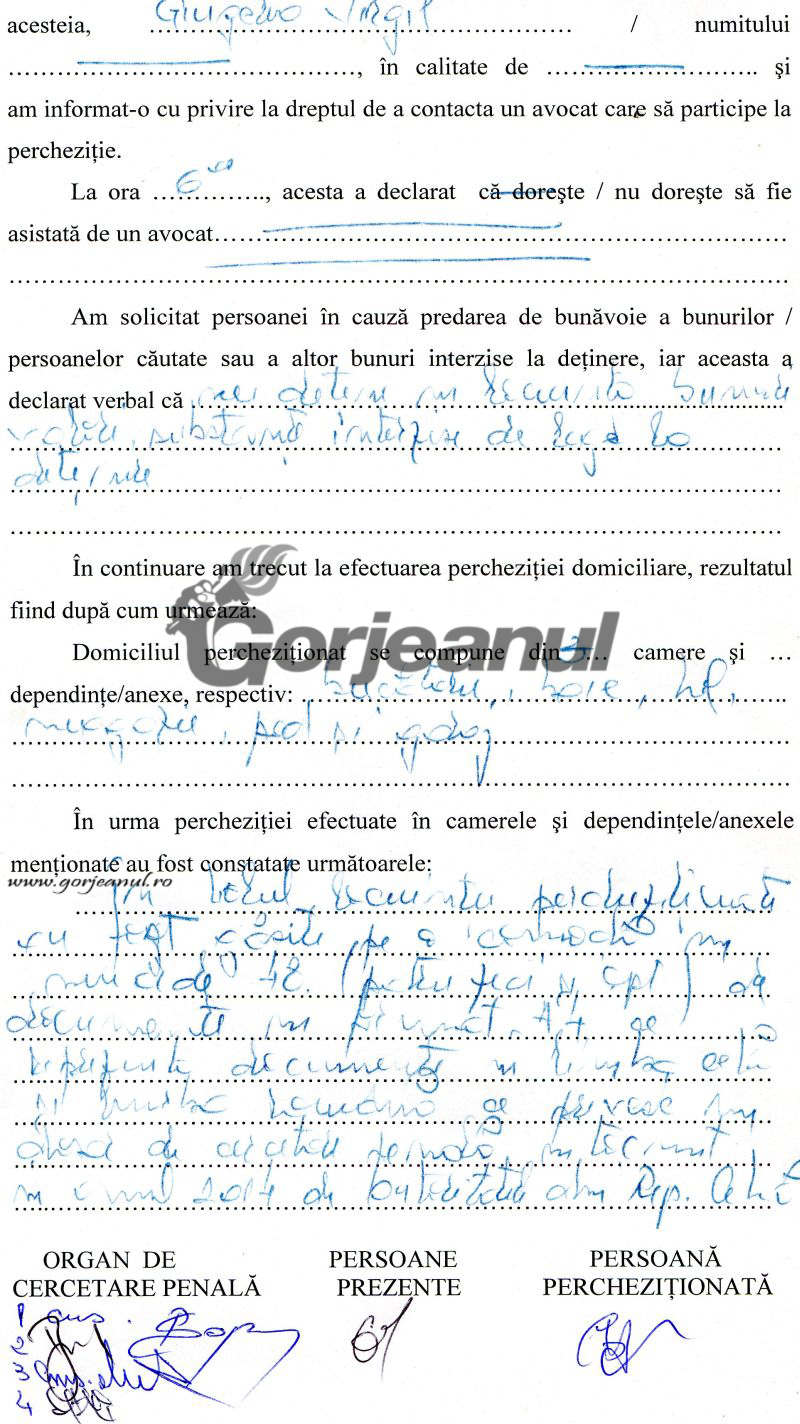 acesteia, Giurgeanu Virgil ……………………………………… / numitului
……………………………………, în calitate de …………………….. şi
am informat-o cu privire la dreptul de a contacta un avocat care să participe la
percheziţie.
La ora 6 ………….., acesta a declarat că doreşte / nu doreşte să fie
asistată de un avocat……………………………………………………………
……………………………………………………………………………………
Am solicitat persoanei în cauză predarea de bunăvoie a bunurilor /
persoanelor căutate sau a altor bunuri interzise la deţinere, iar aceasta a
declarat verbal că nu deţine în locuinţă bunuri
substanţe interzise de lege la
deţinere
……………………………………………………………………………………
În continuare am trecut la efectuarea percheziţiei domiciliare, rezultatul
fiind după cum urmează:
Gorjeanul
Domiciliul percheziţionat se compune din 3… camere şi …
dependinţe/anexe, respectiv: bucătărie, baie, hol,
magazie, pod şi garaj
……………………………………………………………………………………
În urma percheziţiei efectuate în camerele şi dependinţele/anexele
menţionate au fost constatate următoarele:
www.gorjeanul.ro
În holul locuinţei percheziţionate
au fost găsite pe o comodă un
număr de 48 (patruzeci şi opt) de
documente în format A4, ce
reprezintă documente în limba
şi limba română ce privesc un
dosar de cercetare penală, întocmit
în anul 2014 de autorităţile din Rep.
ORGAN DE PERSOANE PERSOANĂ
CERCETARE PENALĂ PREZENTE PERCHEZIŢIONATĂ
1
2
3
4